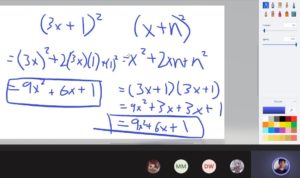 (3x + 1)² (x + n)²
= (3x)² + 2(3x)(1) + (1)² = x² + 2xn + n²
= 9x² + 6x + 1
= (3x + 1)(3x + 1)
= 9x² + 3x + 3x + 1
= 9x² + 6x + 1
MM DW